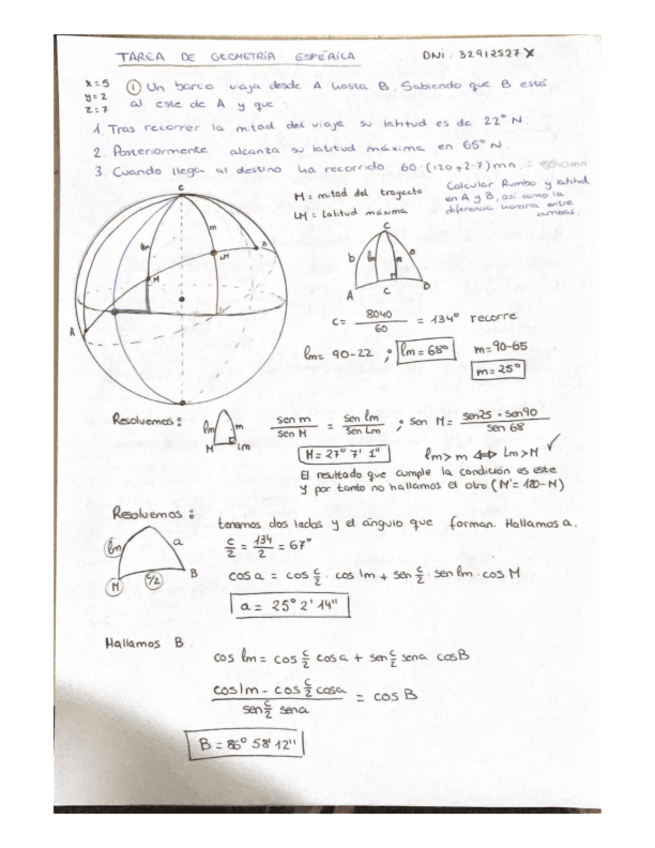 TAREA DE GEOMETRÍA ESFÉRICA
DNI: 32912527X
x = 5
y = 2
z = 7
① Un barco viaja desde A hasta B. Sabiendo que B está
al este de A y que:
1. Tras recorrer la mitad del viaje su latitud es de 22° N.
2. Posteriormente alcanza su latitud máxima en 65° N.
3. Cuando llega al destino ha recorrido 60·(120+2·7) mn. = 8040 mn
Calcular Rumbo y latitud
en A y B, así como la
diferencia horaria entre
ambas.
M = mitad del trayecto
LM = latitud máxima
C
lm
m
B
LM
M
A
C
b
lm
m
a
A
C
B
c = 8040/60 = 134° recorre
lm = 90-22 ; lm = 68°
m = 90-65
m = 25°
Resolvemos:
lm
m
M
Lm
sen m / sen M = sen lm / sen Lm ; sen M = sen25 · sen90 / sen 68
M = 27° 7' 1"
lm > m ⟺ Lm > M ✓
El resultado que cumple la condición es este
y por tanto no hallamos el otro (M' = 180 - M)
Resolvemos:
tenemos dos lados y el ángulo que forman. Hallamos a.
lm
a
M
c/2
B
c/2 = 134/2 = 67°
cos a = cos c/2 · cos lm + sen c/2 · sen lm · cos M
a = 25° 2' 14"
Hallamos B
cos lm = cos c/2 cos a + sen c/2 sen a cos B
cos lm - cos c/2 cos a / sen c/2 sen a = cos B
B = 86° 58' 12"